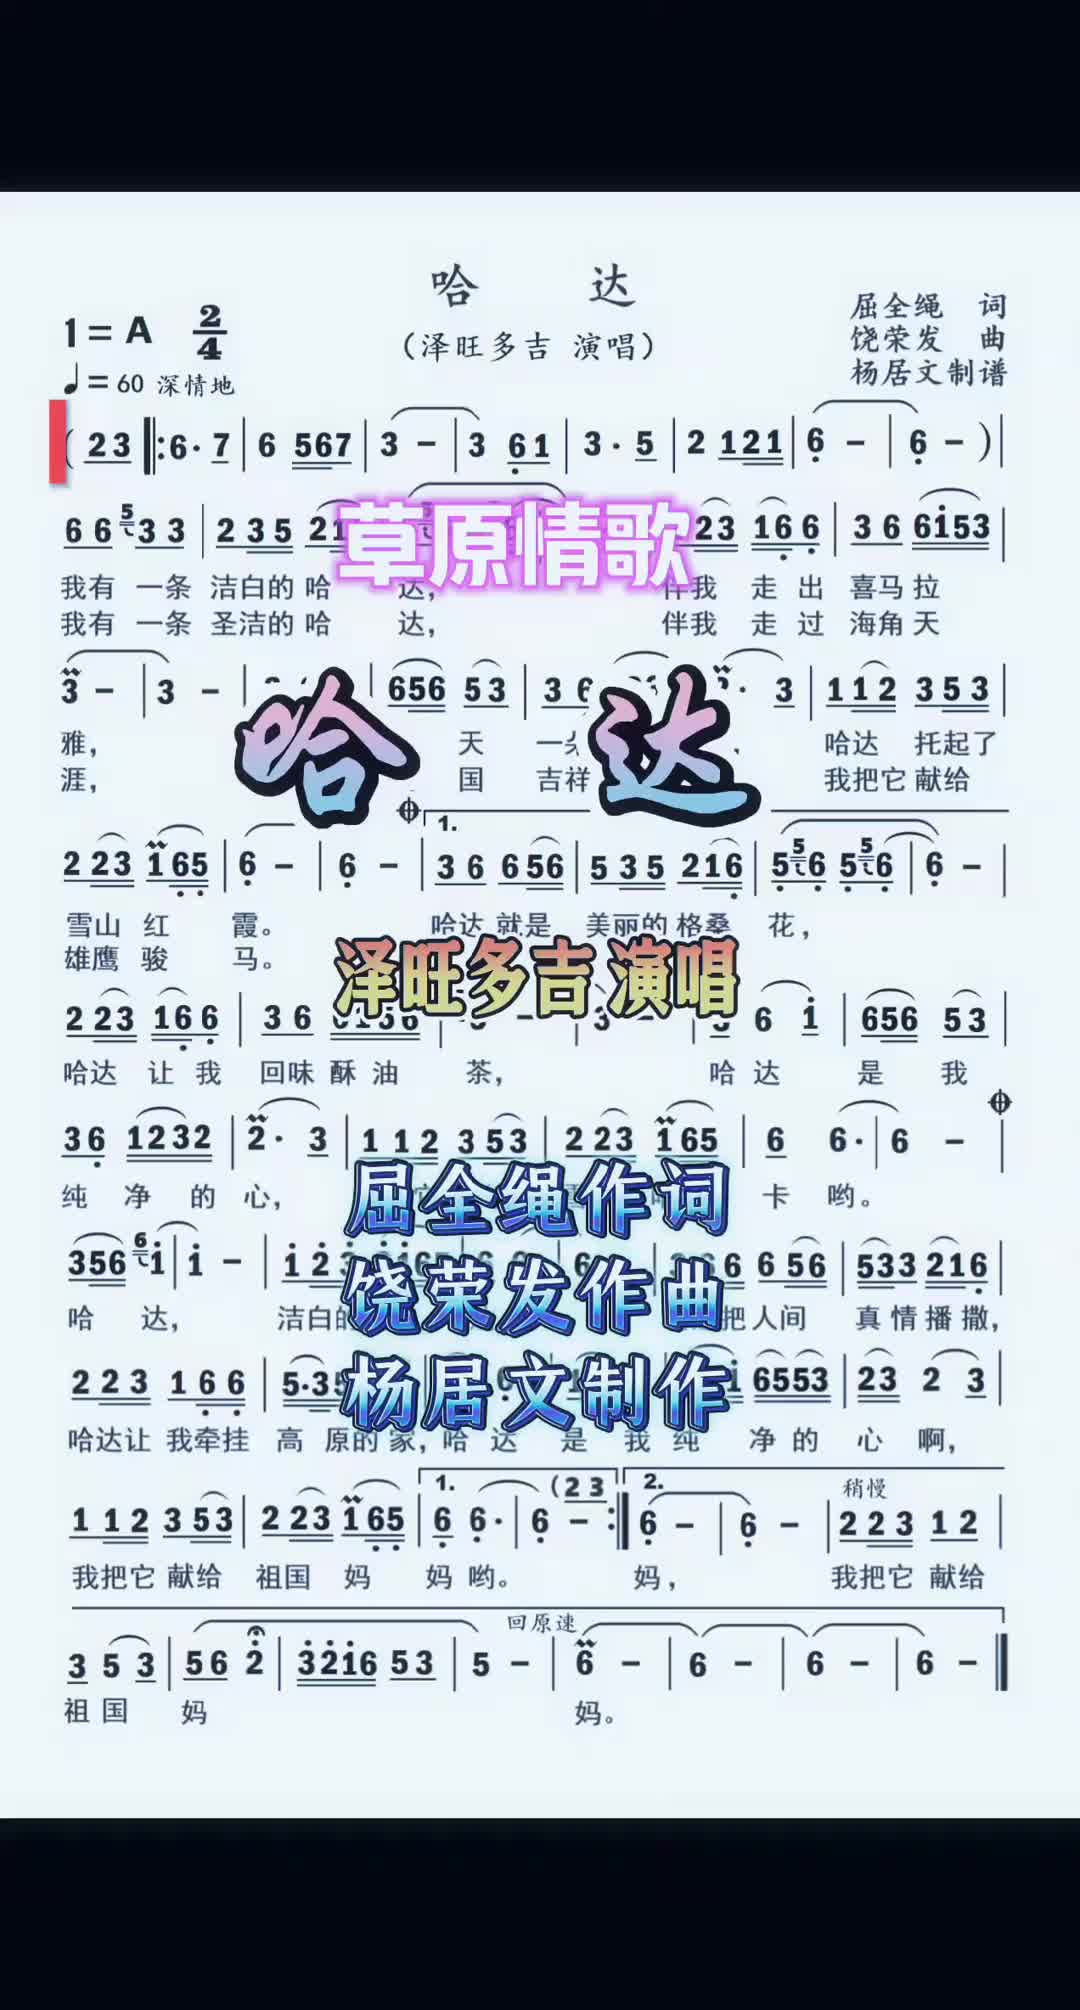 哈 达
(泽旺多吉 演唱)
屈全绳 词
饶荣发 曲
杨居文制谱
1=A 2/4
♩=60 深情地
(23 ‖:6· 7 | 6 567 | 3 - | 3 61 | 3· 5 | 2 121 | 6 - | 6 - ) |
草原情歌
我有 一条 洁白的 哈 达, 伴我 走 出 喜马 拉
我有 一条 圣洁的 哈 达, 伴我 走 过 海角 天
3 - | 3 - |
656 53 | 36
3 | 112 353 |
哈 达
雅, 天 一 哈达 托起了
涯, 国 吉祥 我把它 献给
1.
2 23 1 65 | 6 - | 6 - | 36 656 | 535 216 | 5 56 5 56 | 6 - |
雪山 红 霞。 哈达 就是 美丽的 格桑 花,
雄鹰 骏 马。
泽旺多吉 演唱
2 23 1 6 6 | 36
6 1 | 656 53 |
哈达 让 我 回味 酥 油 茶, 哈 达 是 我
36 1232 | 2· 3 | 112 353 | 223 165 | 6 6· | 6 - |
纯 净 的 心, 卡 哟。
屈全绳作词
356 61 | 1 - |
6 56 | 533 216 |
哈 达, 洁白的 把人间 真情播撒,
饶荣发作曲
223 166 |
6553 | 23 2 3 |
杨居文制作
哈达让 我牵挂 高 原的 家, 哈 达 是 我 纯 净 的 心 啊,
1. (23 2. 稍慢
112 353 | 223 165 | 6 6· | 6 - :‖ 6 - | 6 - | 223 12 |
我把它 献给 祖国 妈 妈 哟。 妈, 我把它 献给
回原速
3 5 3 | 56 2 | 3216 53 | 5 - | 6 - | 6 - | 6 - | 6 - ‖
祖 国 妈 妈。